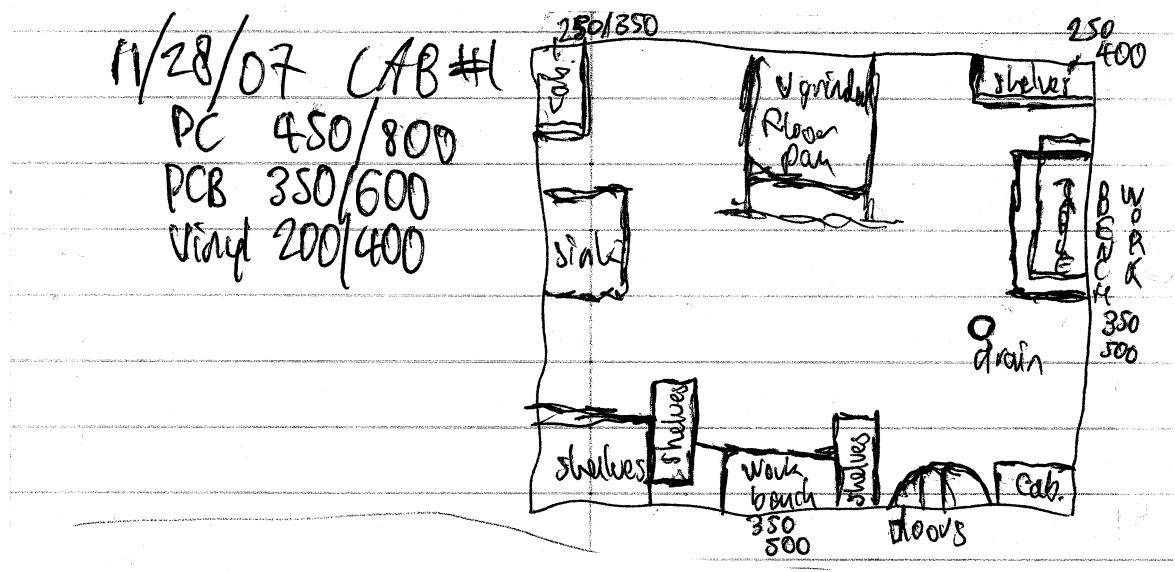 11/28/07 CAB #1
PC 450/800
PCB 350/600
Vinyl 200/400
250/350
cab.
grinder
Floor
pan
250
400
shelves
WORK
BENCH
350
500
sink
drain
shelves
shelves
work
bench
350
500
shelves
doors
cab.